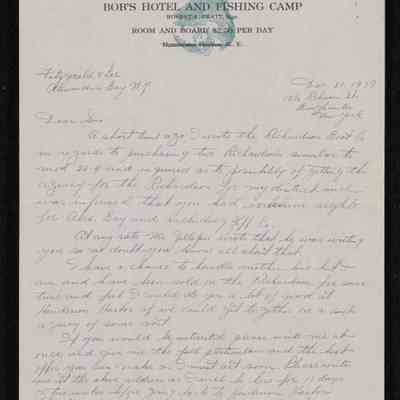 BOB'S HOTEL AND FISHING CAMP
ROBERT A. PRATT, Mgr.
ROOM AND BOARD $2.50 PER DAY
Henderson Harbor, N. Y.
Fitzgerald & Lee
Alexandria Bay N.Y.
Dec. 31, 1937
St.
New York
Dear Sirs
A short time ago I wrote the Richardson Boat Co
in regards to purchasing two Richardsons similar to
mod and inquired as to possibly of getting the
agency for the Richardson for my district and
was informed that you had exclusive rights
for Alex. Bay and including Jeff Co.
At any rate Mr. wrote that he was writing
you so no doubt you know all about that.
I have a chance to handle another line but
am and have been sold on the Richardson for some
time and feel I could do you a lot of good at
Henderson Harbor if we could get together on a
of some sort.
If you would be interested please write me at
once, and give me the full particulars and the best
offer you can make as I must act soon. Please write
me at the above address as I will be here for 10 days
before going to Henderson Harbor